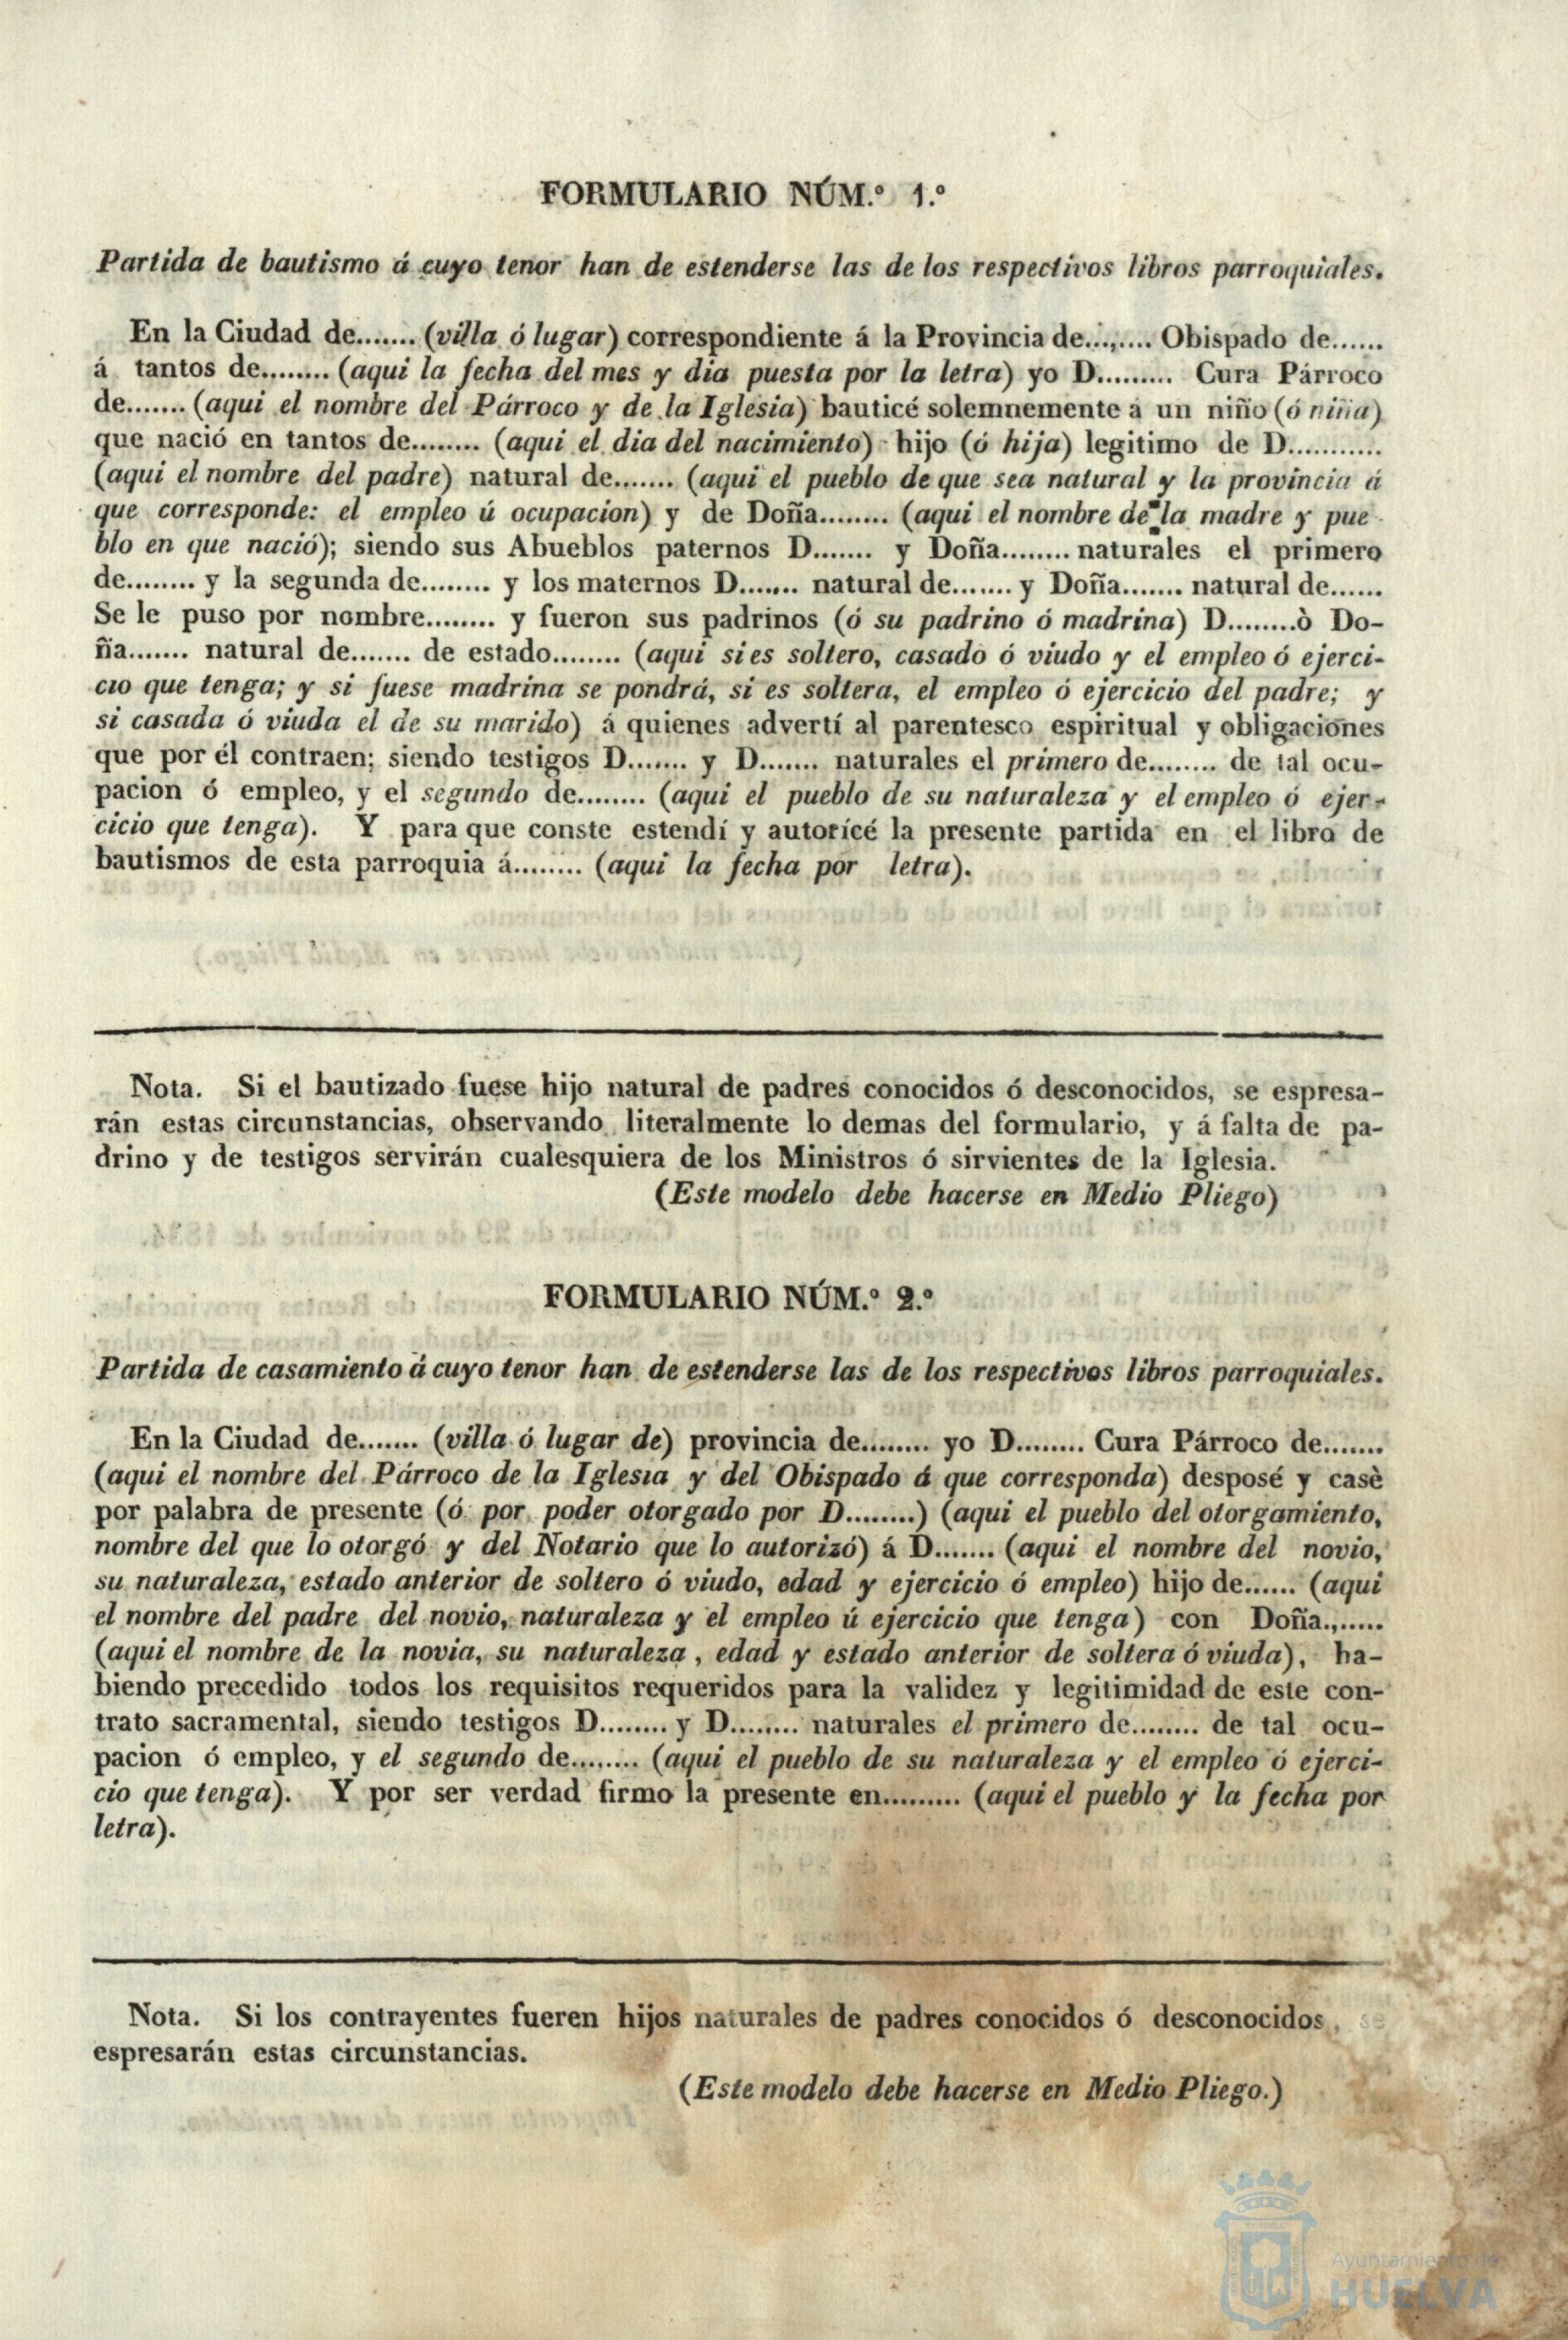 FORMULARIO NÚM.º 1.º
Partida de bautismo á cuyo tenor han de estenderse las de los respectivos libros parroquiales.
En la Ciudad de....... (villa ó lugar) correspondiente á la Provincia de...,.... Obispado de......
á tantos de........ (aqui la fecha del mes y dia puesta por la letra) yo D......... Cura Párroco
de....... (aqui el nombre del Párroco y de la Iglesia) bauticé solemnemente á un niño (ó niña)
que nació en tantos de........ (aqui el dia del nacimiento) hijo (ó hija) legitimo de D...........
(aqui el nombre del padre) natural de....... (aqui el pueblo de que sea natural y la provincia á
que corresponde: el empleo ú ocupacion) y de Doña........ (aqui el nombre de la madre y pue-
blo en que nació); siendo sus Abueblos paternos D....... y Doña........ naturales el primero
de........ y la segunda de........ y los maternos D....... natural de....... y Doña....... natural de......
Se le puso por nombre........ y fueron sus padrinos (ó su padrino ó madrina) D........ò Do-
ña....... natural de....... de estado........ (aqui si es soltero, casado ó viudo y el empleo ó ejerci-
cio que tenga; y si fuese madrina se pondrá, si es soltera, el empleo ó ejercicio del padre; y
si casada ó viuda el de su marido) á quienes advertí al parentesco espiritual y obligaciones
que por él contraen; siendo testigos D....... y D....... naturales el primero de........ de tal ocu-
pacion ó empleo, y el segundo de........ (aqui el pueblo de su naturaleza y el empleo ó ejer-
cicio que tenga). Y para que conste estendí y autorícé la presente partida en el libro de
bautismos de esta parroquia á........ (aqui la fecha por letra).
Nota. Si el bautizado fuese hijo natural de padres conocidos ó desconocidos, se espresa-
rán estas circunstancias, observando literalmente lo demas del formulario, y á falta de pa-
drino y de testigos servirán cualesquiera de los Ministros ó sirvientes de la Iglesia.
(Este modelo debe hacerse en Medio Pliego)
FORMULARIO NÚM.º 2.º
Partida de casamiento á cuyo tenor han de estenderse las de los respectivos libros parroquiales.
En la Ciudad de....... (villa ó lugar de) provincia de........ yo D........ Cura Párroco de.......
(aqui el nombre del Párroco de la Iglesia y del Obispado á que corresponda) desposé y casè
por palabra de presente (ó por poder otorgado por D........) (aqui el pueblo del otorgamiento,
nombre del que lo otorgó y del Notario que lo autorizó) á D....... (aqui el nombre del novio,
su naturaleza, estado anterior de soltero ó viudo, edad y ejercicio ó empleo) hijo de...... (aqui
el nombre del padre del novio, naturaleza y el empleo ú ejercicio que tenga) con Doña.,.....
(aqui el nombre de la novia, su naturaleza, edad y estado anterior de soltera ó viuda), ha-
biendo precedido todos los requisitos requeridos para la validez y legitimidad de este con-
trato sacramental, siendo testigos D........ y D........ naturales el primero de........ de tal ocu-
pacion ó empleo, y el segundo de........ (aqui el pueblo de su naturaleza y el empleo ó ejerci-
cio que tenga). Y por ser verdad firmo la presente en......... (aqui el pueblo y la fecha por
letra).
Nota. Si los contrayentes fueren hijos naturales de padres conocidos ó desconocidos, se
espresarán estas circunstancias.
(Este modelo debe hacerse en Medio Pliego.)
Ayuntamiento de
HUELVA